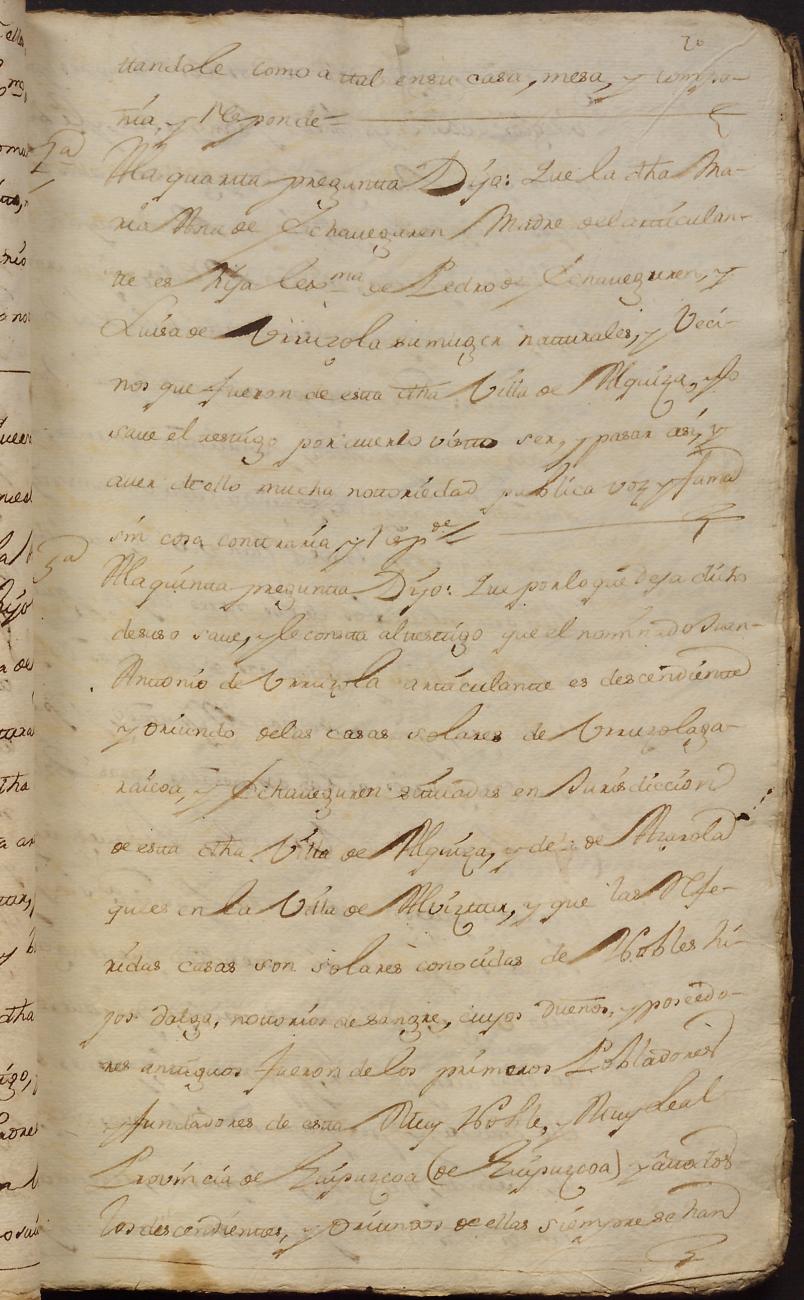 20
ttandole como a ttal en su casa, mesa, y compa-
ñia, y Responde
4ª A la quartta pregunta Dijo: Que la dha Ma-
ria Ana de Echaueguren Madre del artticulan-
tte es hija lex.ma de Pedro de Echaueguren, y
Luisa de Vrruzola su muger natturales, y Veci-
nos que fueron de esta dha Villa de Alquiza, y lo
saue el testigo por auerlo visto ser, y pasar asi, y
auer de ello mucha nottoriedad publica voz y fama
sin cosa conttraria y Resp.de
5ª A la quintta pregunta Dijo: Que por lo que deja dicho
de suso saue, y le consta al testigo que el nominado Juan
Anttonio de Vrruzola artticulantte es descendientte
y oriundo de las casas solares de Vrruzolaga-
raicoa, y Echaueguren sittuadas en Jurisdiccion
de esta dha Villa de Alquiza, y de la de Azarola
que es en la Villa de Alviztur, y que las Refe-
ridas casas son solares conocidas de Nobles hi-
jos dalgo, nottorios de sangre, cuyos dueños, y poseedo-
res antiguos fueron de los primeros Pobladores
y fundadores de esta Muy Noble, y Muy Leal
Provincia de Guipuzcoa (de Guipuzcoa) y a todos
los descendientes, y oriundos de ellas siempre se han